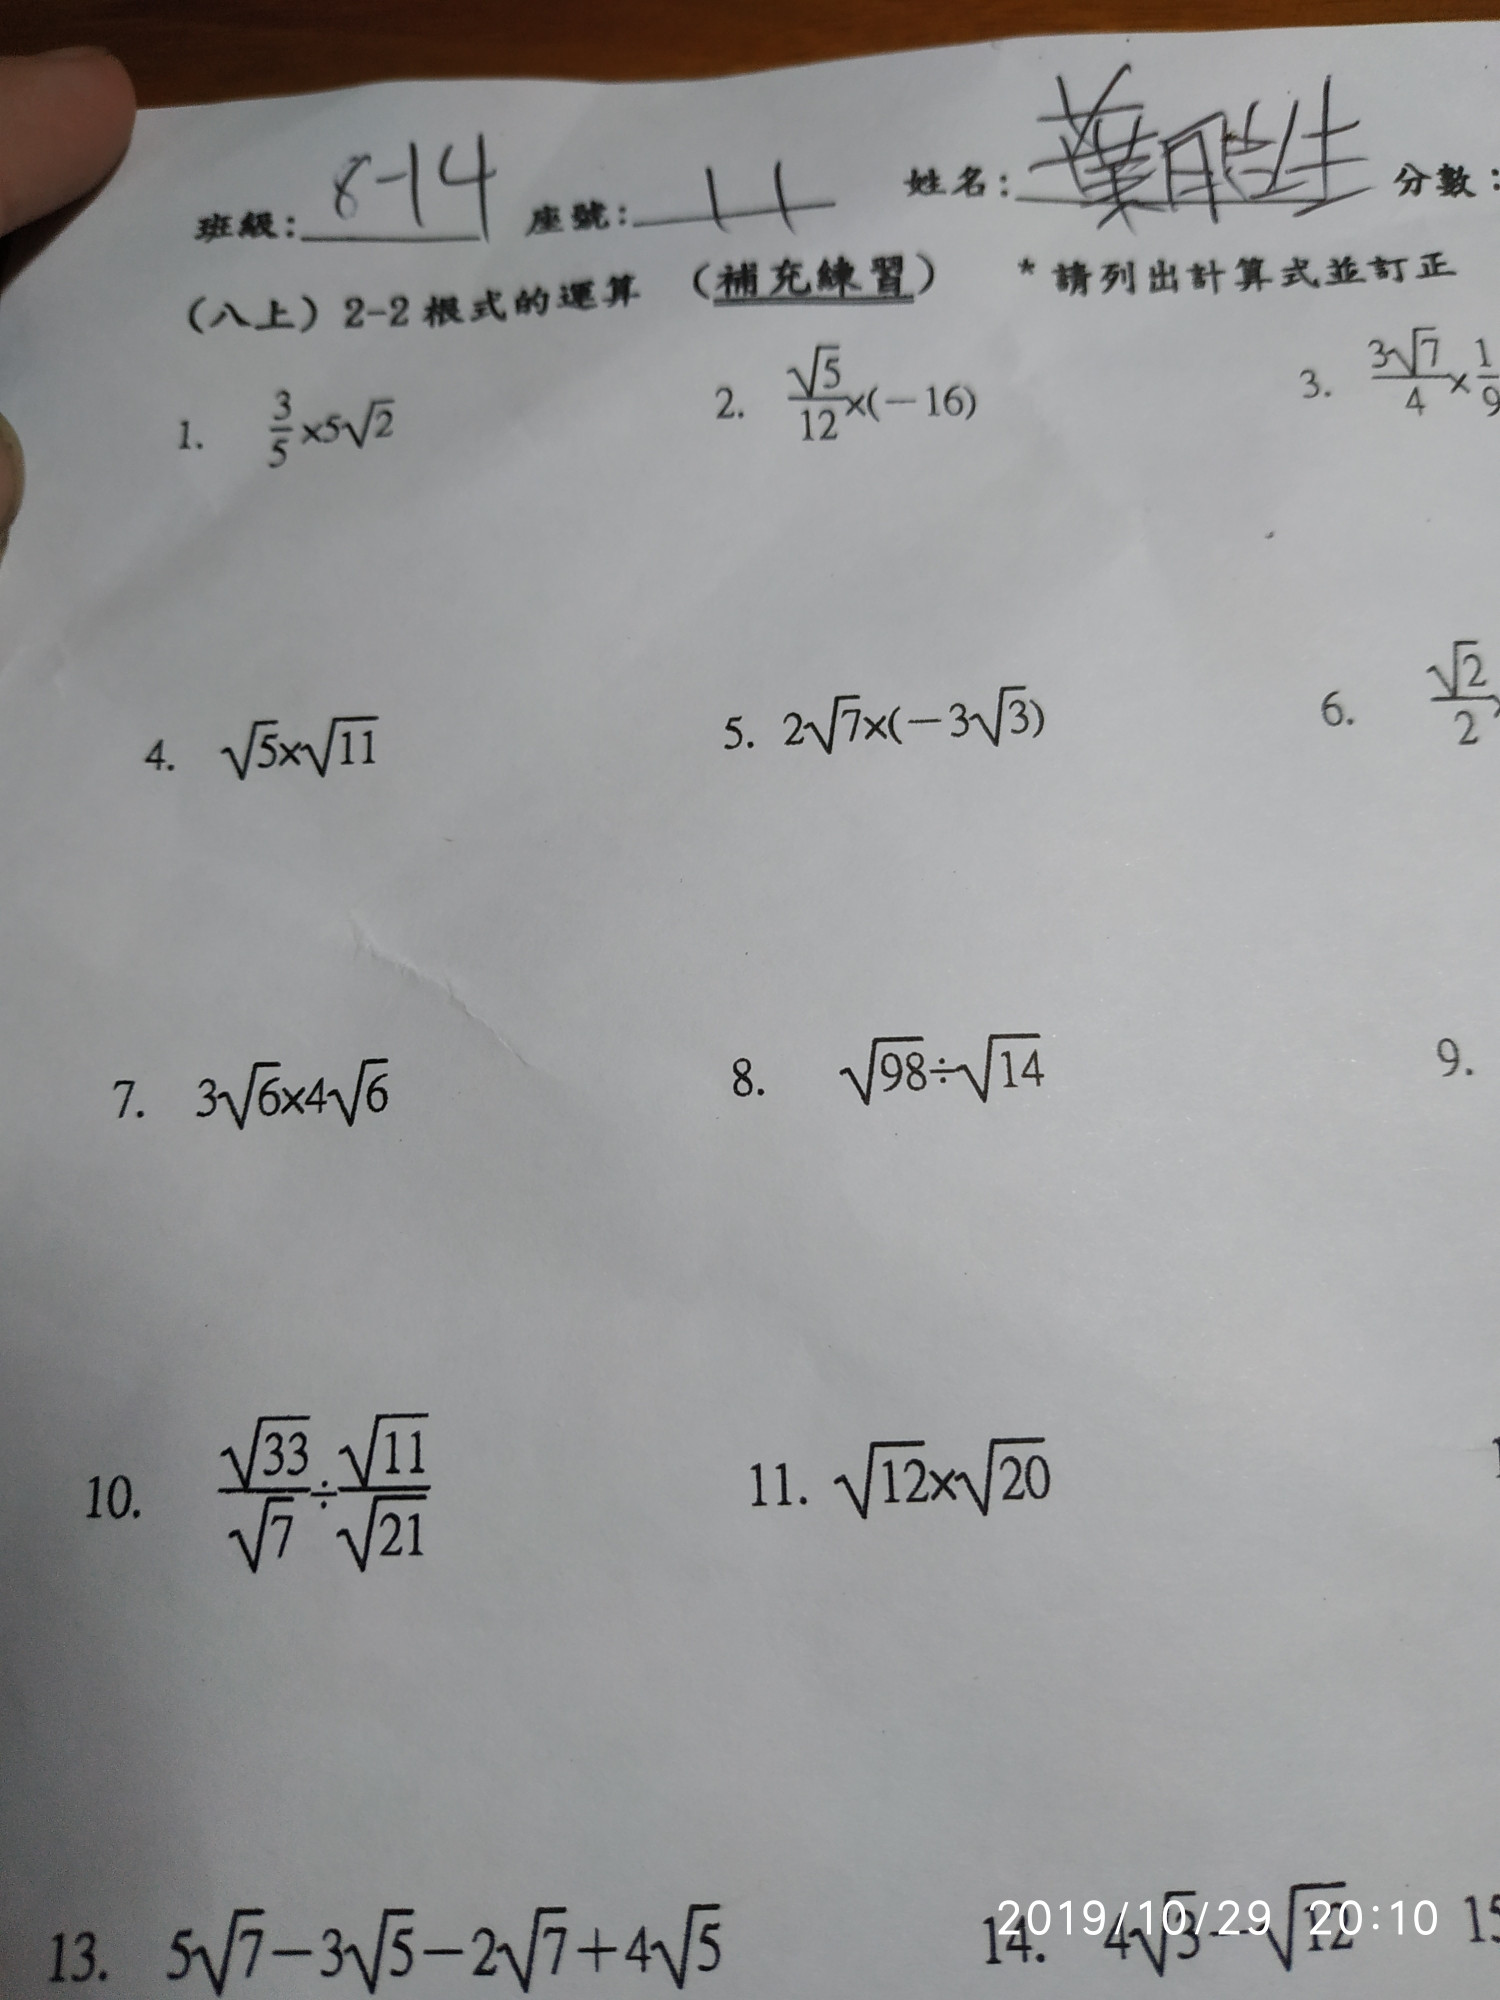 班級: 8-14 座號: 11 姓名: 葉 生 分數:
（八上）2-2 根式的運算 （補充練習） * 請列出計算式並訂正
1. 3/5×5√2 2. √5/12×(－16) 3. 3√7/4×1/9
4. √5×√11 5. 2√7×(－3√3) 6. √2/2
7. 3√6×4√6 8. √98÷√14 9.
10. √33/√7÷√11/√21 11. √12×√20
13. 5√7－3√5－2√7＋4√5 14. 4√3－√12 15
2019/10/29 20:10